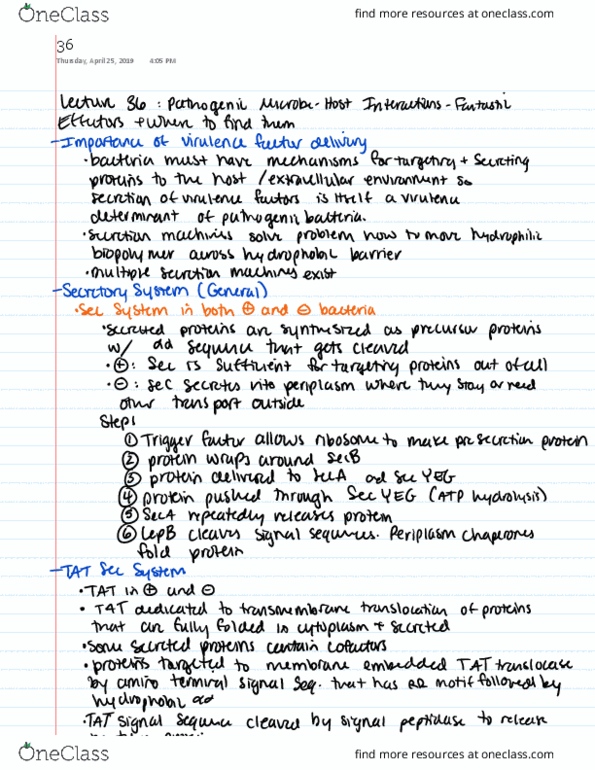 OneClass
find more resources at oneclass.com
36
Thursday, April 25, 2019 4:05 PM
Lecture 36 : Pathogenic Microbe-Host Interactions - Fantastic
Effectors + Where to find them
-Importance of virulence factor delivery
•bacteria must have mechanisms for targeting + secreting
proteins to the host /extracellular environment so
secretion of virulence factors is itself a virulence
determinant of pathogenic bacteria.
•secretion machines solve problem how to move hydrophilic
biopolymer across hydrophobic barrier
•multiple secretion machines exist
-Secretory System (General)
•Sec System in both ⊕ and ⊖ bacteria
•secreted proteins are synthesized as precursor proteins
w/ aa sequence that gets cleaved
•⊕: Sec is sufficient for targeting proteins out of cell
•⊖: sec secretes into periplasm where they stay or need
other transport outside
Steps
① Trigger factor allows ribosome to make presecretion protein
② protein wraps around secB
③ protein delivered to secA and Sec YEG
④ protein pushed through Sec YEG (ATP hydrolysis)
⑤ SecA repeatedly releases protein
⑥ LepB cleaves signal sequences. Periplasm chaperones
fold protein
-TAT Sec System
•TAT in ⊕ and ⊖
• TAT dedicated to transmembrane translocation of proteins
that are fully folded in cytoplasm + secreted
•some secreted proteins contain cofactors
•proteins targeted to membrane embedded TAT translocase
by amino terminal signal seq. that has RR motif followed by
hydrophobic aa
•TAT signal sequence cleaved by signal peptidase to release
OneClass
find more resources at oneclass.com